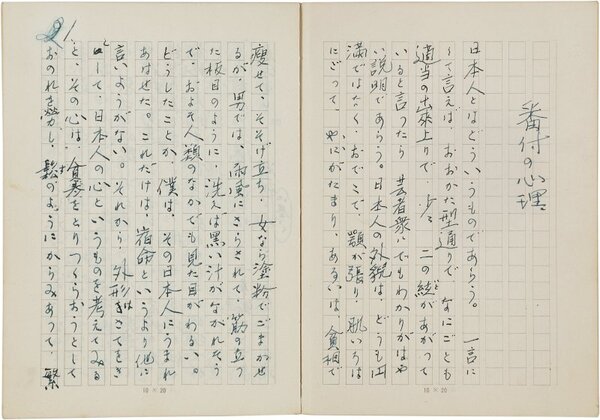 番付の心理
日本人とはどういうものであらう。一言に
して言えば、おおかた型通りで、なにごとも
適当の出来上りで、少々二の絃があがって
いると言ったら芸者衆にでもわかりがはや
い説明であらう。日本人の外貌は、どうも円
満ではなく、おでこで、顎が張り、肌いろは
にごって、やにがたまり、あるいは、貧相で
瘦せて、そそげ立ち、女なら塗粉でごまかせ
るが、男では、雨風にさらされて、筋の立つ
た板目のように、洗えば黒い汁がながれそう
で、およそ人類のなかでも見た目がわるい。
どうしたことか、僕は、その日本人にうまれ
あはせた。これだけは、宿命というより他に
言いようがない。それから、外形はさてをき
として、日本人の心というものを考えてみる
と、その心は、貧寒をとりつくらおうとして
おのれを魅力し、鬆のようにからみあって、繁
10 × 20
10 × 20